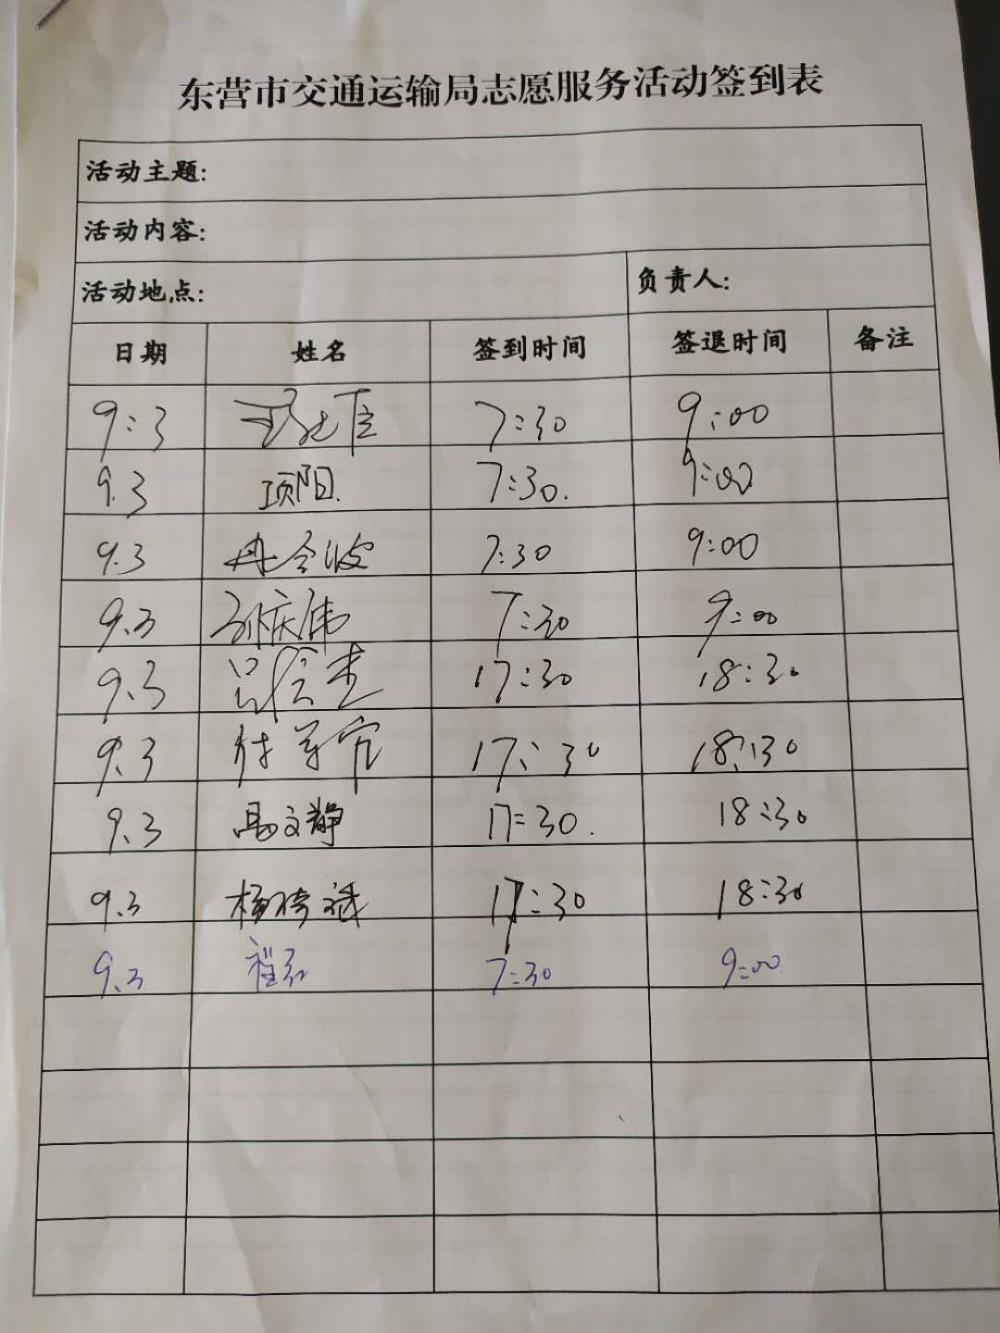 东营市交通运输局志愿服务活动签到表
活动主题:
活动内容:
活动地点: 负责人:
日期 姓名 签到时间 签退时间 备注
9:3 7:30 9:00
9.3 项阳. 7:30. 9:00
9.3 7:30 9:00
9.3 孙庆伟 7:30 9:00
9.3 吕信杰 17:30 18:30
9.3 17:30 18:30
9.3 冯文静 17:30. 18:30
9.3 杨琦斌 17:30 18:30
9.3 7:30 9:00